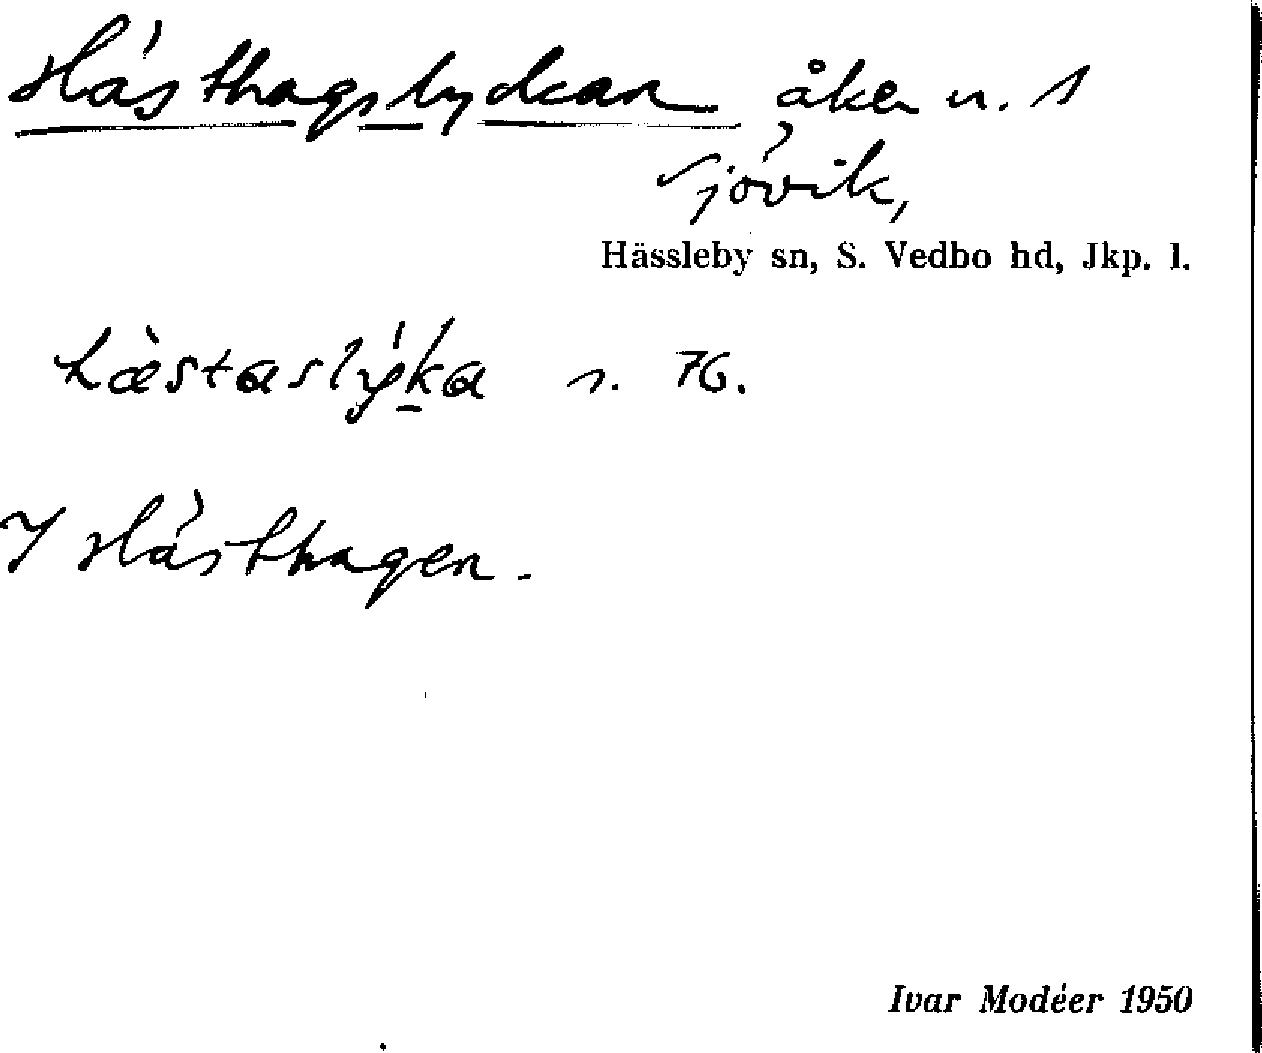 Hästhagslyckan åker n. 1
Sjövik,
Hässleby sn, S. Vedbo hd, Jkp. l.
hæ̀staslýka s. 76.
I Hästhagen.
Ivar Modéer 1950